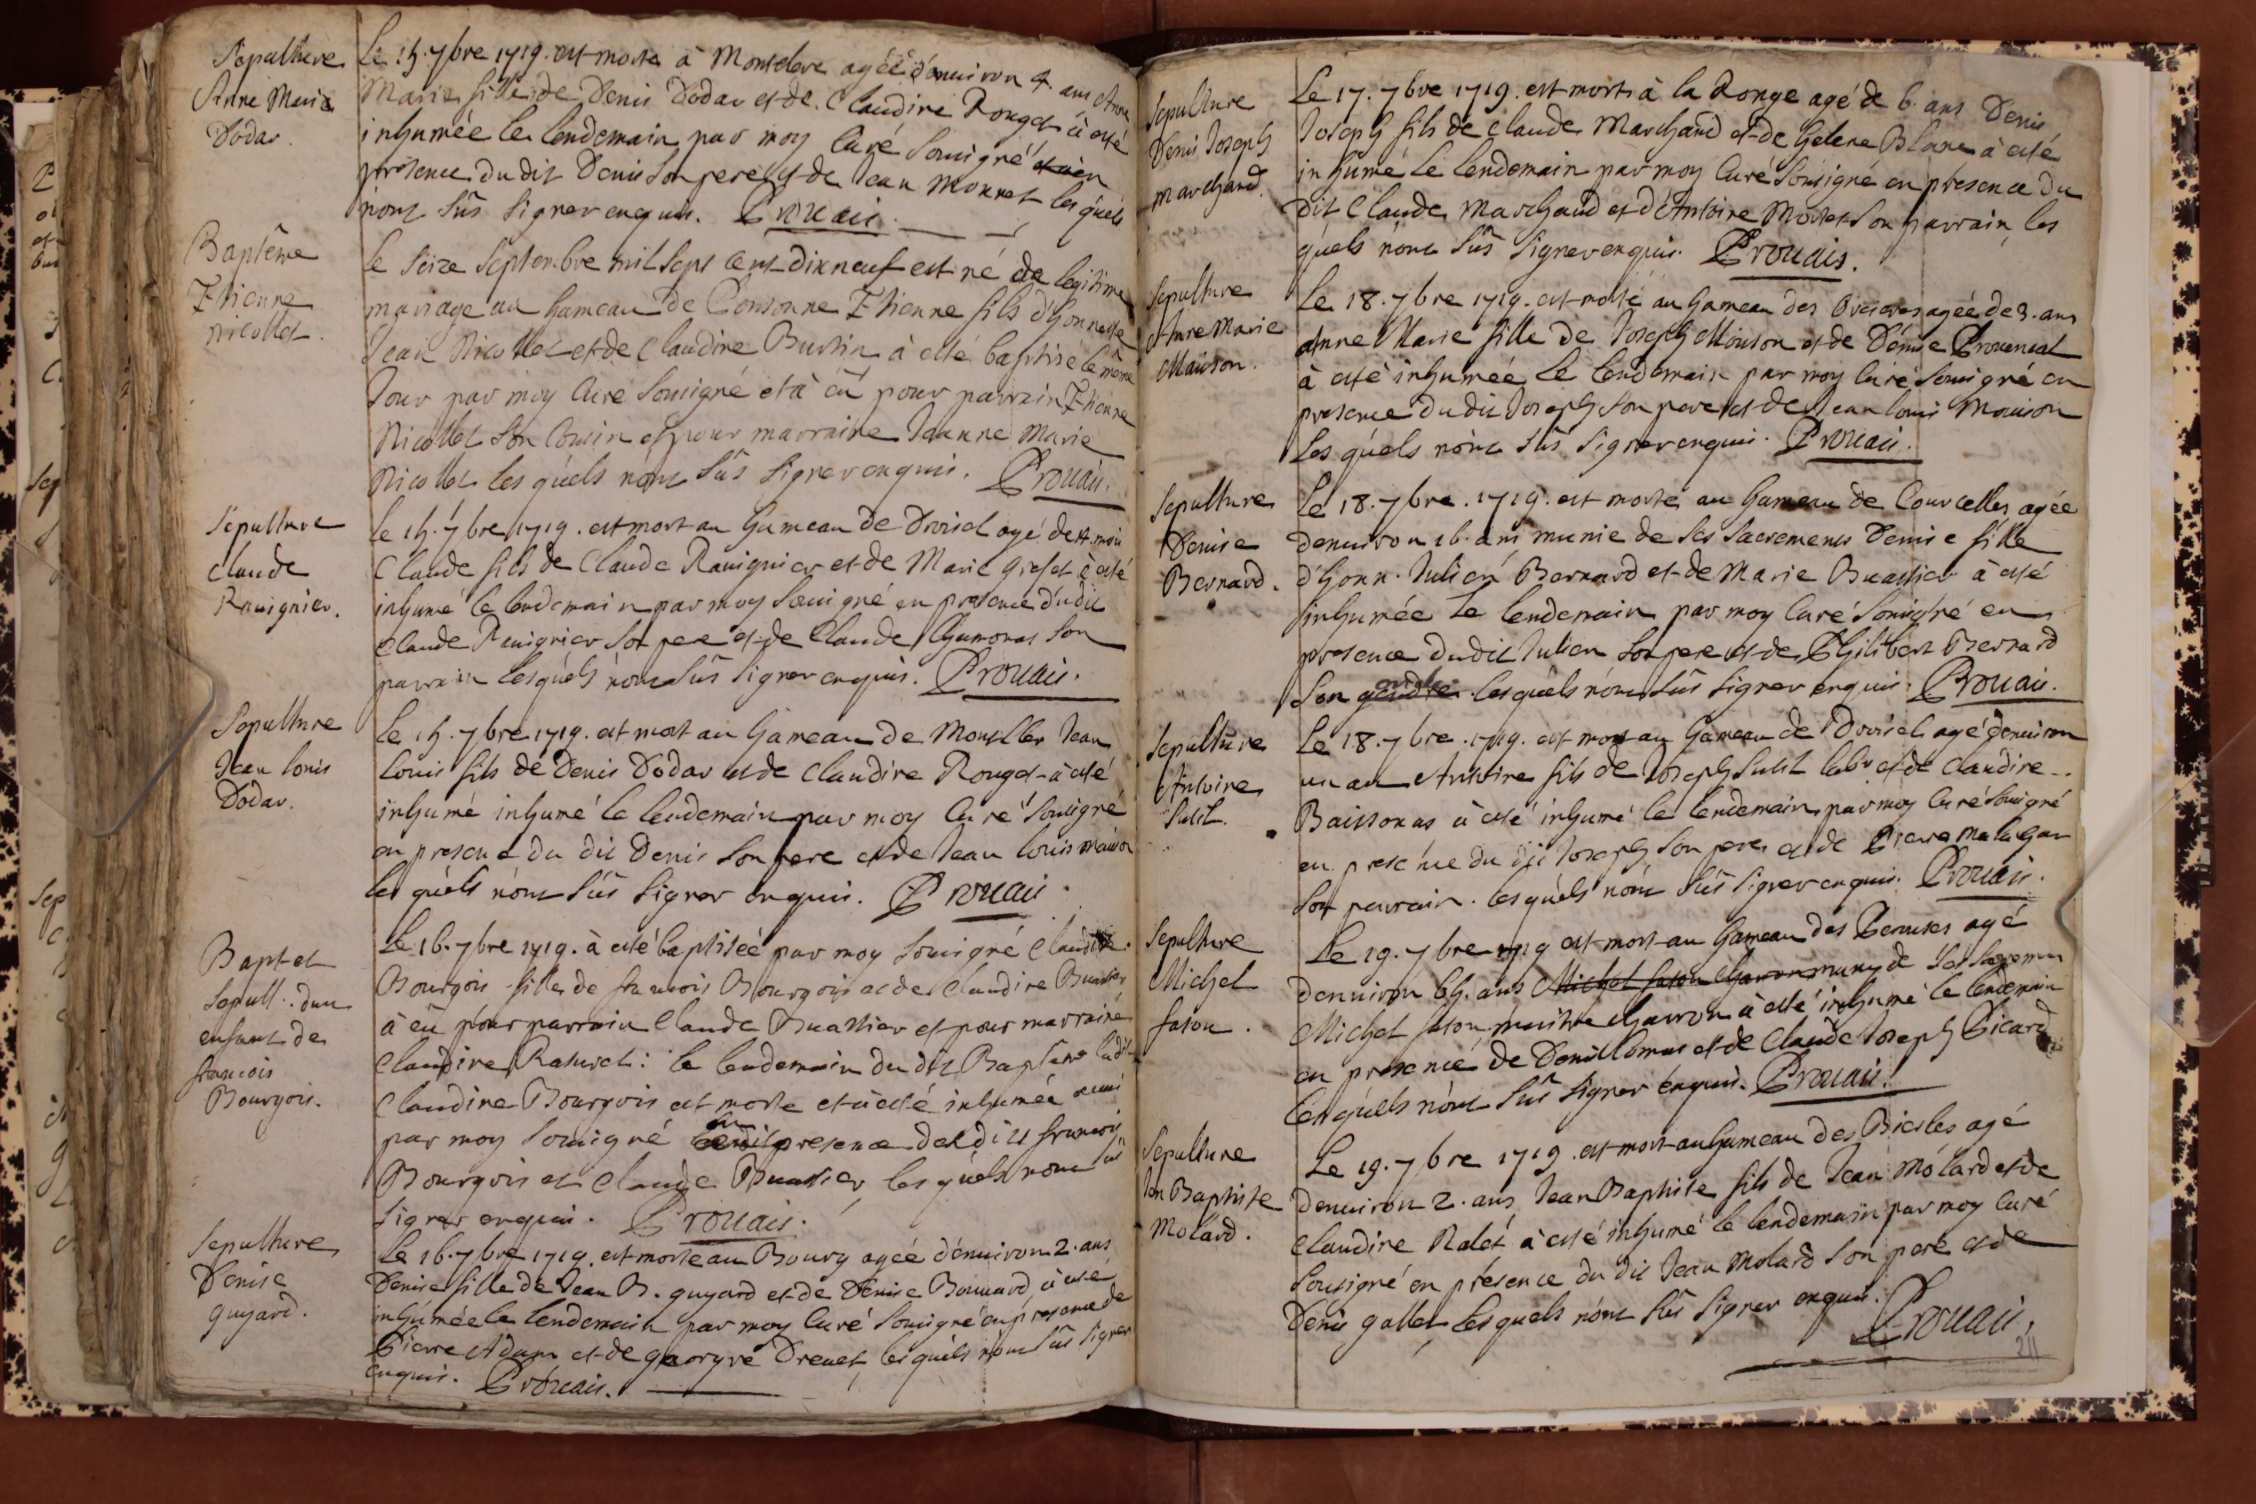 Sepulture
Anne Marie
Dodar.
Le 15. 7bre 1719. est morte à Montclere agéé d'enuiron 4. ans Anne
Marie fille de Denis Dodar et de Claudine Rouget à esté
inhumée le lendemain par moy Curé sousigné et en
presence du dit Denis son pere et de Jean Monnet les quels
n'ont sûs signer enquis. Prouais.
Baptême
Ethienne
Nicollet.
Le seize septembre mil sept cent dixneuf est né de legitime
mariage au hameau de Consonne Ethienne fils d'honneste
Jean Nicollet et de Claudine Burtin à esté baptisé le même
Jour par moy Curé sousigné et à eû pour parrain Ethienne
Nicollet son Cousin et pour marraine Jeanne Marie
Nicollet les quels n'ont sûs signer enquis. Prouais.
Sepulture
Claude
Rauignier.
Le 15. 7bre 1719. est mort au hameau de Droisel agé de mois
Claude fils de Claude Rauignier et de Marie à esté
inhumé le lendemain par moy sousigné en presence dudit
Claude Rauignier son pere et de Claude Chamonas son
parrain lesquels n'ont sûs signer enquis. Prouais.
Sepulture
Jean louis
Dodar.
Le 15. 7bre 1719. est mort au hameau de Jean
louis fils de Denis Dodar et de Claudine Rouget à esté
inhumé inhumé le lendemain par moy Curé sousigné
en presence du dit Denis son pere et de Jean louis maison
les quels n'ont sûs signer enquis. Prouais.
Bapt. et
Sepult. d'un
enfant de
francois
Bourgois.
Le 16. 7bre 1719. à esté baptiséé par moy sousigné Claudine
Bourgois fille de francois Bourgois et de Claudine Buattier
à eû pour parrain Claude Buattier et pour marraine
Claudine : le lendemain du dit Baptême ladt.
Claudine Bourgois est morte et à esté inhumée aussi
par moy sousigné en presence des dits francois
Bourgois et Claude Buattier les quels n'ont sûs
signer enquis. Prouais.
Sepulture
Denise
guyard.
Le 16. 7bre 1719. est morte au Bourg agéé d'enuiron 2. ans
Denise fille de Jean B. guyard et de Denise Bouuard à esté
inhumée le lendemain par moy Curé sousigné en presence de
Pierre Adam et de george Dreuet les quels n'ont sûs signer
enquis. Prouais.
Sepulture
Denis Joseph
marchand.
Le 17. 7bre 1719. est mort à la Ronge agé de 6. ans Denis
Joseph fils de Claude Marchand et de helene Blanc à esté
inhumé le lendemain par moy Curé sousigné en presence du
dit Claude Marchand et d'Antoine Morel son parrain, les
quels n'ont sûs signer enquis. Prouais.
Sepulture
Anne Marie
Maison.
Le 18. 7bre 1719. est morte au hameau des agée de 3. ans
Anne Marie fille de Joseph Mouson et de Denise Prouencal
à esté inhumée le lendemain par moy Curé sousigné en
presence du dit Joseph son pere et de Jean louis Mouison
les quels n'ont sûs signer enquis. Prouais.
Sepulture
Denise
Bernard.
Le 18. 7bre. 1719. est morte au hameau de Courcelles agée
denuiron 16. ans munie de ses sacremens Denise fille
d'honn. Julien Bernard et de Marie Buattier à esté
inhumée le lendemain par moy Curé sousigné en
presence dudit Julien son pere et de Philibert Bernard
son oncle les quels n'ont sûs signer enquis. Prouais.
Sepulture
Antoine
Sulil.
Le 18. 7bre. 1719. est mort au hameau de Droisel agé d'enuiron
un an Antoine fils de Joseph Sulil labr. et de Claudine
Baissonas à esté inhumé le lendemain par moy Curé sousigné
en presence du dit Joseph son pere et de Pierre
son parrain. lesquels n'ont sûs signer enquis. Prouais.
Sepulture
Michel
faton.
Le 19. 7bre 1719 est mort au hameau des agé
d'enuiron 65. ans Michel faton Charron muny de ses sacremens
Michel faton, maitre charron à esté inhumé le lendemain
en presence de Denis et de Claude Joseph Picard
lesquels n'ont sûs signer enquis. Prouais.
Sepulture
Jean Baptiste
Molard.
Le 19. 7bre 1719. est mort au hameau des Biesles agé
d'enuiron 2. ans Jean Baptiste fils de Jean Molard et de
Claudine Ralet à esté inhumé le lendemain par moy Curé
sousigné en présence du dit Jean Molard son pere et de
Denis gallet lesquels n'ont sûs signer enquis.
Prouais.
211